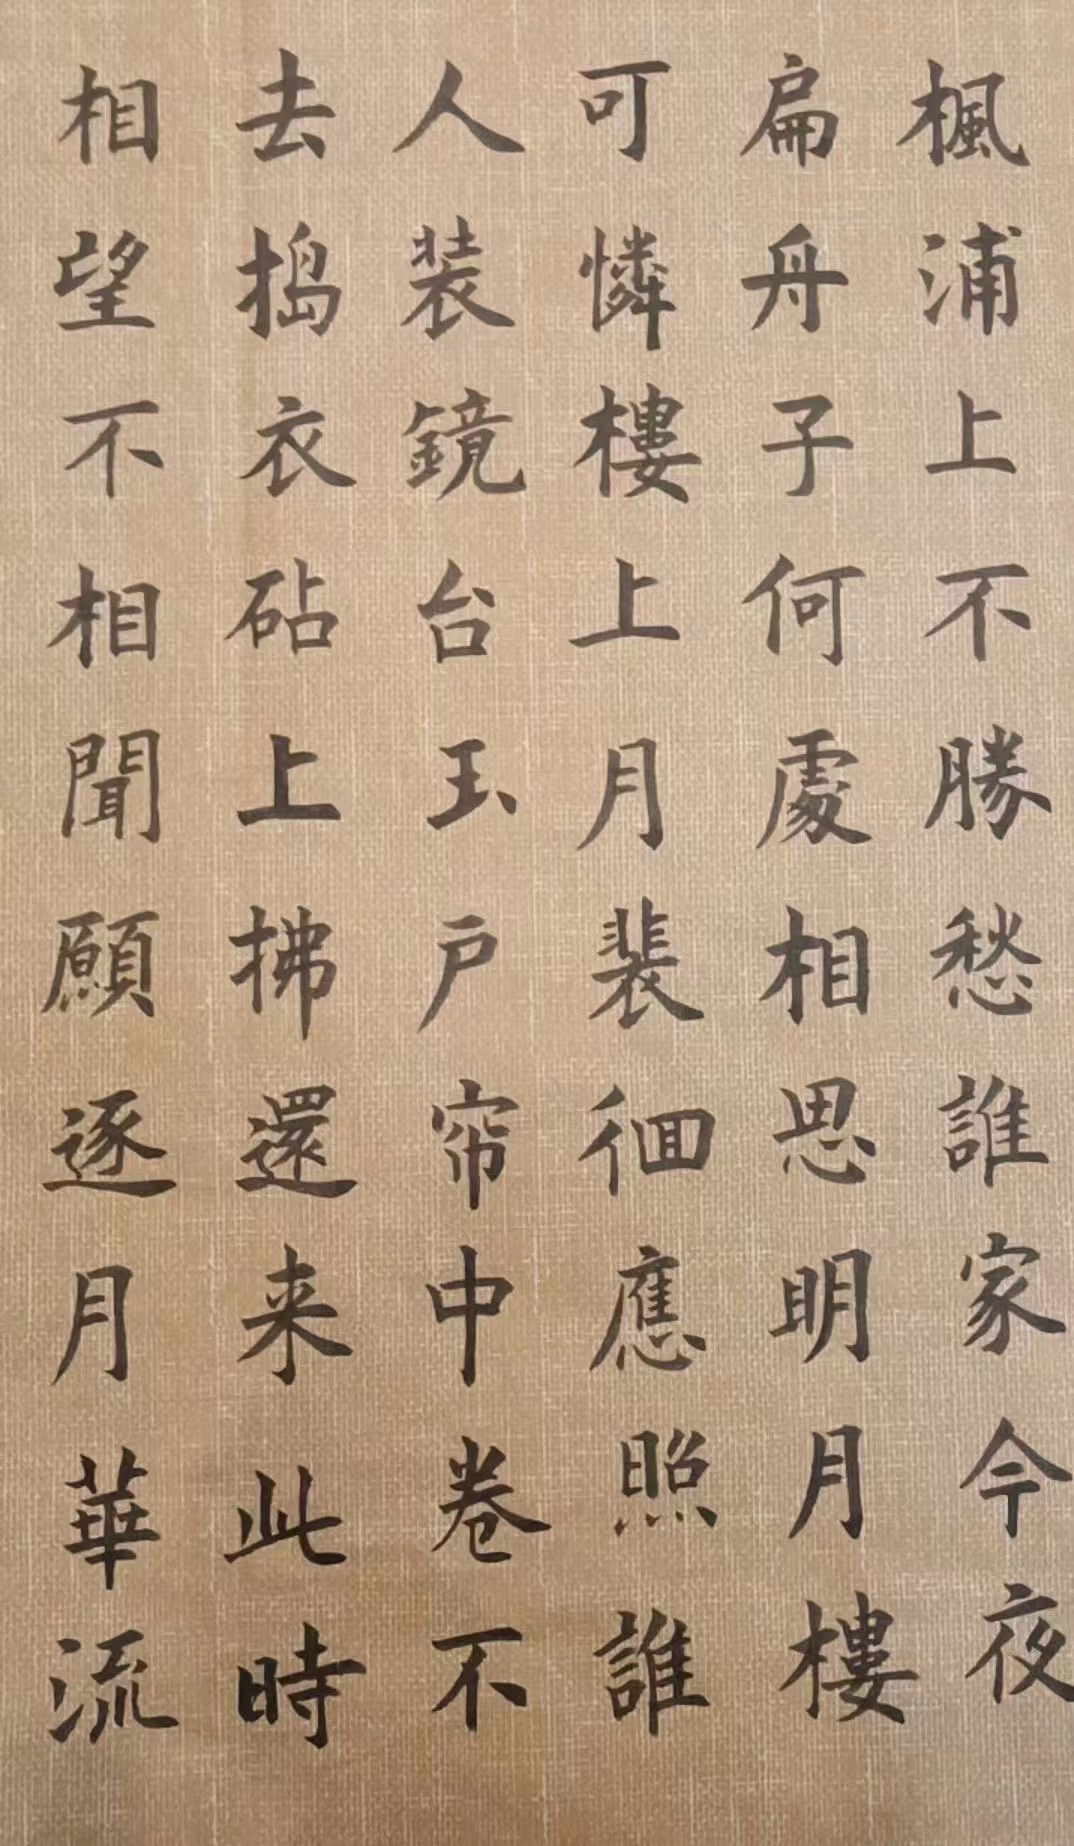 楓浦上不勝愁誰家今夜
扁舟子何處相思明月樓
可憐樓上月裴徊應照誰
人装鏡台玉戶帘中卷不
去搗衣砧上拂還来此時
相望不相聞願逐月華流